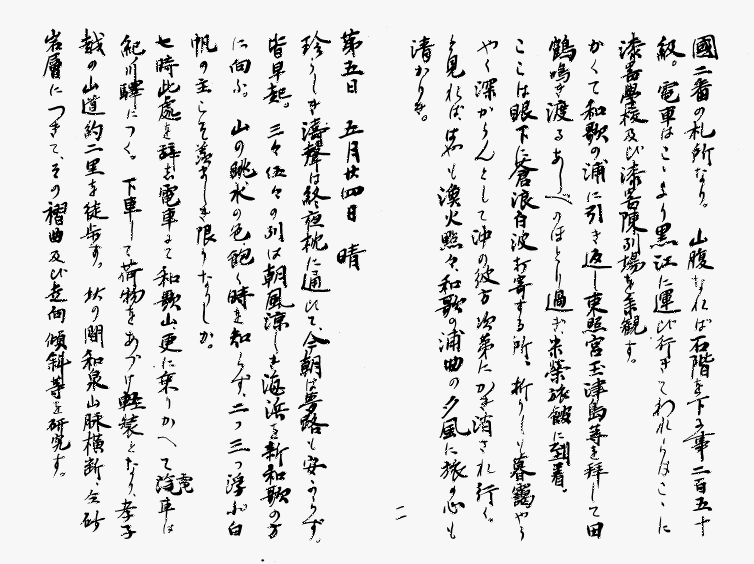 國二番の札所なり。山腹なれば石階を下る事二百五十
級。電車はこゝより黒江に運び行きてわれらはこゝに
漆器學校及び漆器陳列場を参観す。
かくて和歌の浦に引き返し東照宮玉津島等を拝して田
鶴鳴き渡るあしべのほとり過ぎ、米榮旅館に到着。
ここは眼下に蒼浪白波打寄する所、折りしも暮靄やう
やく深からんとして沖の彼方次第にかき消され行く。
と見ればはやも漁火點々、和歌の浦曲の夕風に旅の心も
清かりき。
二
第五日 五月廿四日 晴
珍らしき濤聲は終夜枕に通ひて、今朝は夢路も安からず。
皆早起。三々伍々の列は朝風涼しき海浜を新和歌の方
に向ふ。山の眺水の色飽く時を知らず、二つ三つ浮ぶ白
帆の主こそ羨しき限りなりしか。
七時此處を辞去電車にて和歌山、更に乗りかへて汽電車は
紀川驛につく。下車して荷物をあづけ軽装となり、孝子
越の山道約二里を徒歩す。此の間和泉山脈横断、全砂
岩層につきて、その褶曲及び走向傾斜等を研究す。